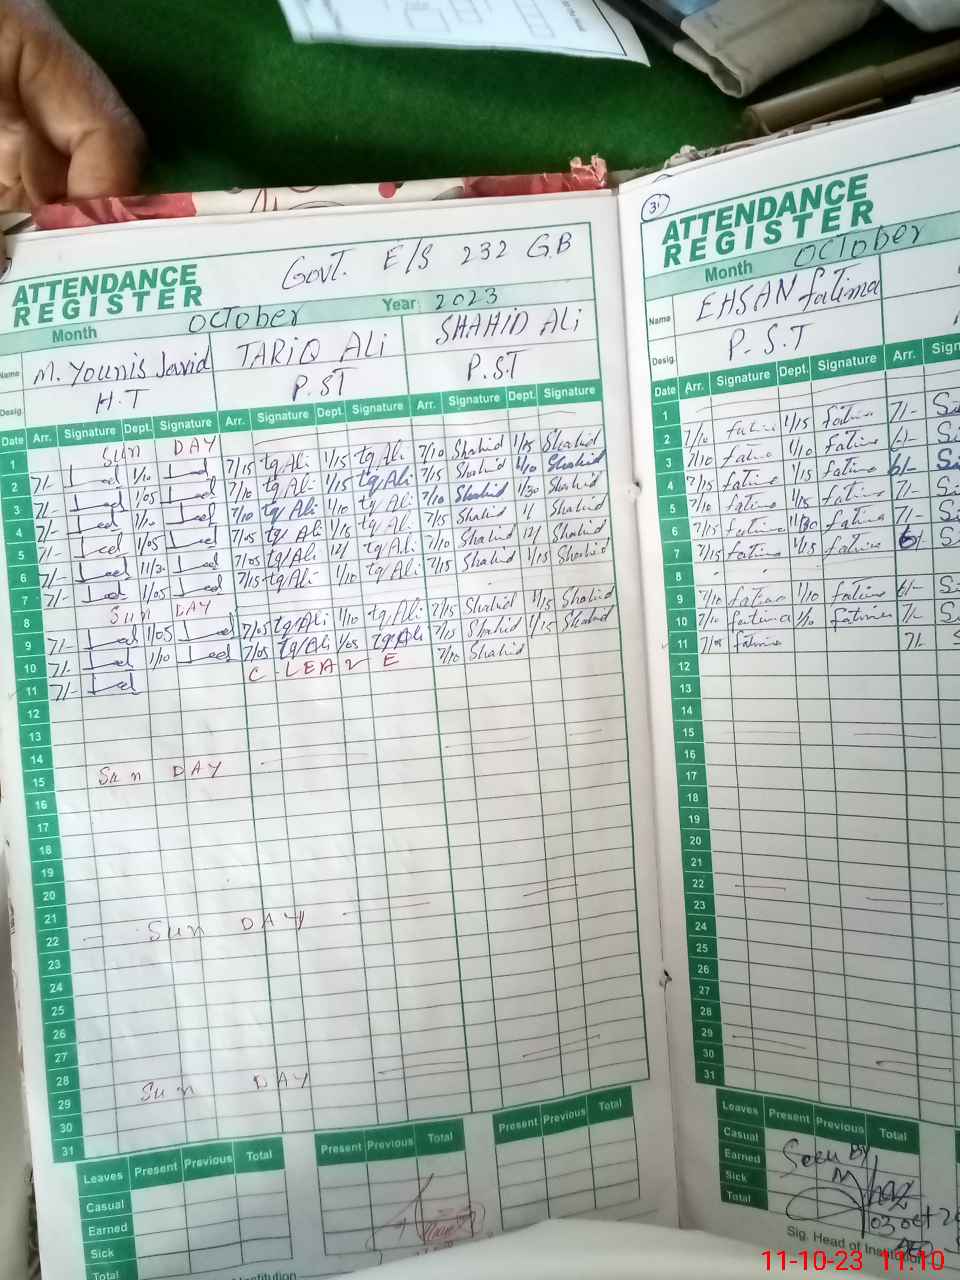 ATTENDANCE
REGISTER
GOVT. E/S 232 G.B
Month October Year 2023
Name M. Younis Javid TARIQ ALi SHAHID ALi
Desig. H.T P.ST P.S.T
Date Arr. Signature Dept. Signature Arr. Signature Dept. Signature Arr. Signature Dept. Signature
1 Sun DAY
2 7/- 1/10 7/15 tq Ali 1/15 tq Ali 7/10 Shahid 1/15 Shahid
3 7/- 1/05 7/10 tq Ali 1/15 tq Ali 7/15 Shahid 1/10 Shahid
4 7/- 1/10 7/10 tq Ali 1/10 tq Ali 7/10 Shahid 1/30 Shahid
5 7/- 1/05 7/05 tq Ali 1/15 tq Ali 7/15 Shahid 1/ Shahid
6 7/- 11/30 7/05 tq Ali 12/ tq Ali 7/10 Shahid 12/ Shahid
7 7/- 1/05 7/15 tq Ali 1/10 tq Ali 7/15 Shahid 1/15 Shahid
8 Sun DAY
9 7/- 1/05 7/05 tq Ali 1/10 tq Ali 7/15 Shahid 1/15 Shahid
10 7/- 1/10 7/05 tq Ali 1/05 tq Ali 7/15 Shahid 1/15 Shahid
11 7/- C-LEAVE 7/10 Shahid
12
13
14
15 Sun DAY
16
17
18
19
20
21
22 Sun DAY
23
24
25
26
27
28
29 Sun DAY
30
31
Leaves Present Previous Total Present Previous Total Present Previous Total
Casual
Earned
Sick
Total
31
ATTENDANCE
REGISTER
Month October
Name EHSAN fatima
Desig. P-S.T
Date Arr. Signature Dept. Signature Arr.
1
2 7/10 fatima 1/15 Fatima 7/-
3 7/10 fatima 1/10 Fatima
4 7/15 fatima 1/15 Fatima 6/-
5 7/10 fatima 1/15 Fatima 7/-
6 7/15 fatima 11/30 fatima 7/-
7 7/15 fatima 1/15 fatima 6/-
8
9 7/10 fatima 1/10 fatima 6/-
10 7/10 fatima 1/10 Fatima 7/-
11 7/05 fatima 7/-
12
13
14
15
16
17
18
19
20
21
22
23
24
25
26
27
28
29
30
31
Leaves Present Previous Total
Casual Seen By
Earned
Sick
Total 03 oct 2
Sig. Head of Institution
AEO
11-10-23 11:10